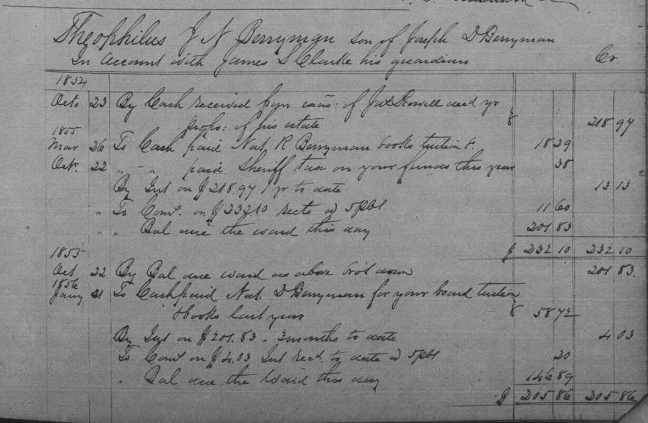 Theophilus J N Berryman son of Joseph D Berryman
In account with James S Clarke his guardian Cr.
1854
Octo 23 By Cash received from exor. of Jas Dowell decd yr
propo: of his estate $ 218 97
1855
Mar 26 To Cash paid Nat. R Berryman books tuition &. 18 29
Oct. 22 " " paid Sheriff tax on your funds this year 38
By Int on $218.97 1 yr to date 13 13
" To Comt. on $232.10 rects @ 5 pct 11 60
" " Bal due the ward this day 201 83
$ 232 10 232 10
1855
Oct 22 By Bal due ward as above bro't down 201 83.
1856
Jany 21 To Cash paid Nat. D Berryman for your board tuition
& books last year $ 58 72
By Int on $201.83. 3 months to date 4 03
To Comt on $4.03 Int rect to date @ 5 pct 20
" Bal due the Ward this day 146 89
$ 205 86 205 86